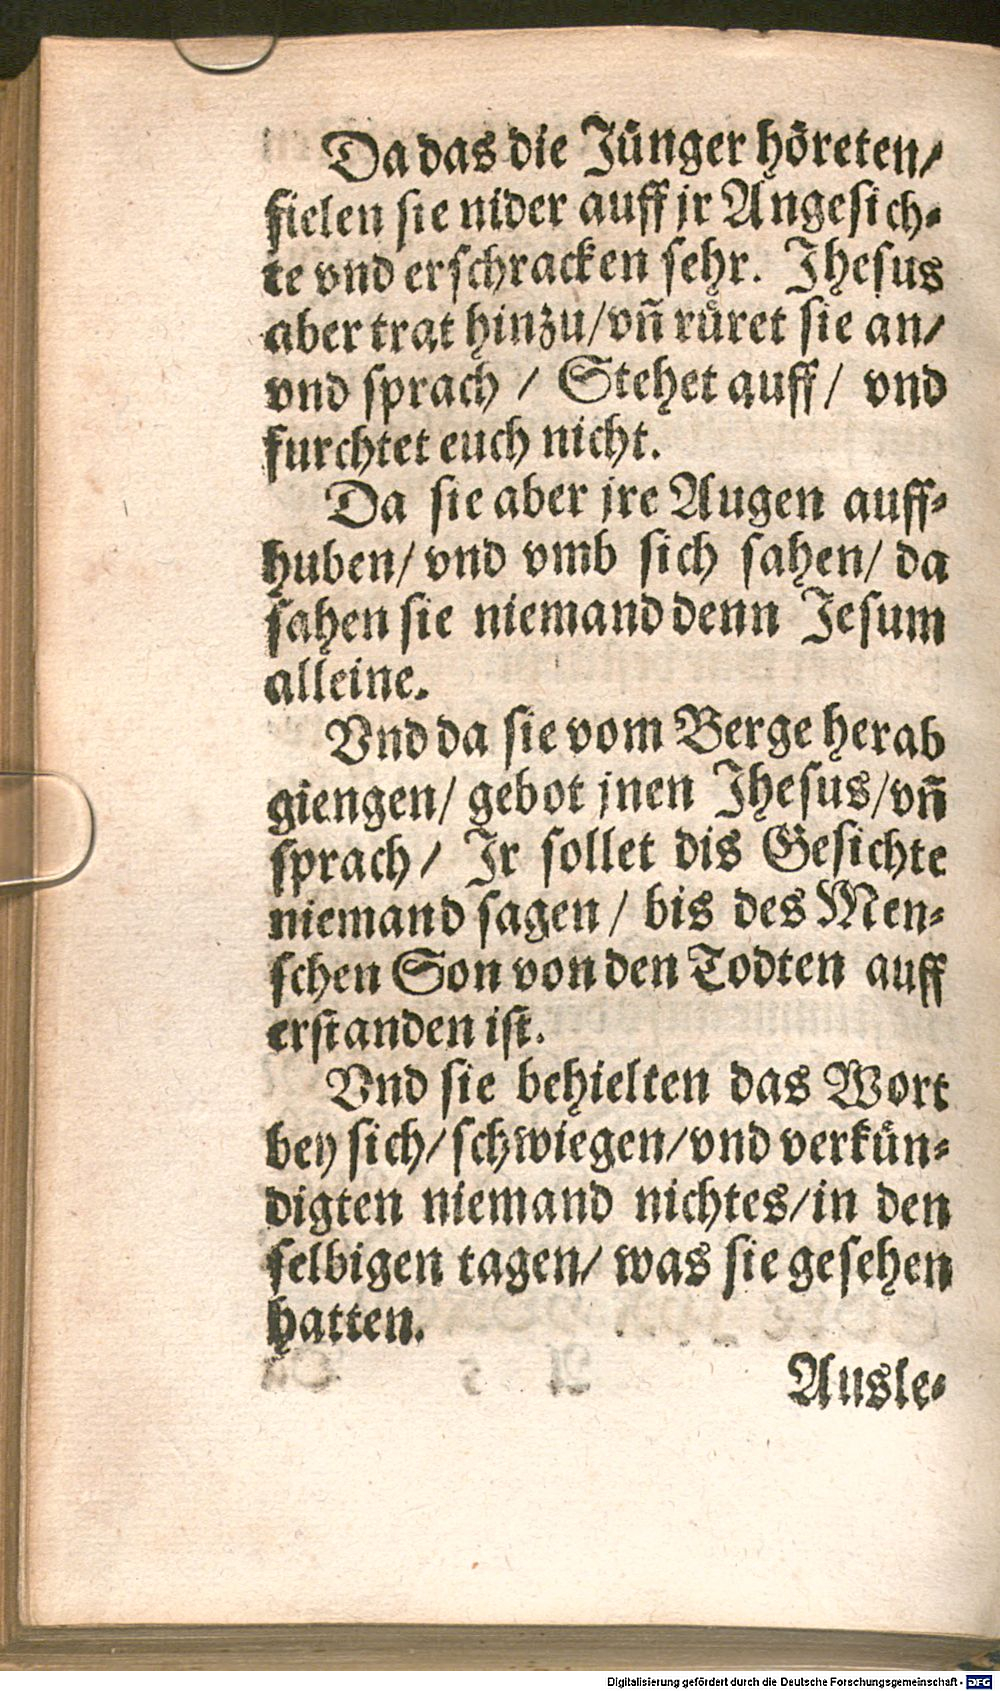 Da das die Jünger höreten/
fielen sie nider auff jr Angesich⸗
te vnd erschracken sehr. Jhesus
aber trat hinzu/vñ rüret sie an/
vnd sprach / Stehet auff / vnd
furchtet euch nicht.
Da sie aber jre Augen auff⸗
huben/ vnd vmb sich sahen/ da
sahen sie niemand denn Jesum
alleine.
Vnd da sie vom Berge herab
giengen/ gebot jnen Jhesus/vñ
sprach/ Jr sollet dis Gesichte
niemand sagen / bis des Men⸗
schen Son von den Todten auff
erstanden ist.
Vnd sie behielten das Wort
bey sich/ schwiegen/vnd verkün⸗
digten niemand nichtes/in den
selbigen tagen/ was sie gesehen
hatten.
Ausle⸗
Digitalisierung gefördert durch die Deutsche Forschungsgemeinschaft - DFG